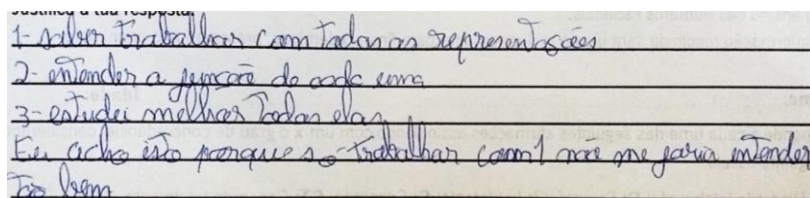 Justifica a tua resposta.
1- saber trabalhar com todas as representações
2- entender a função de cada uma
3- estudei melhor todas elas
Eu acho isto porque so trabalhar com 1 não me faria entender
tão bem